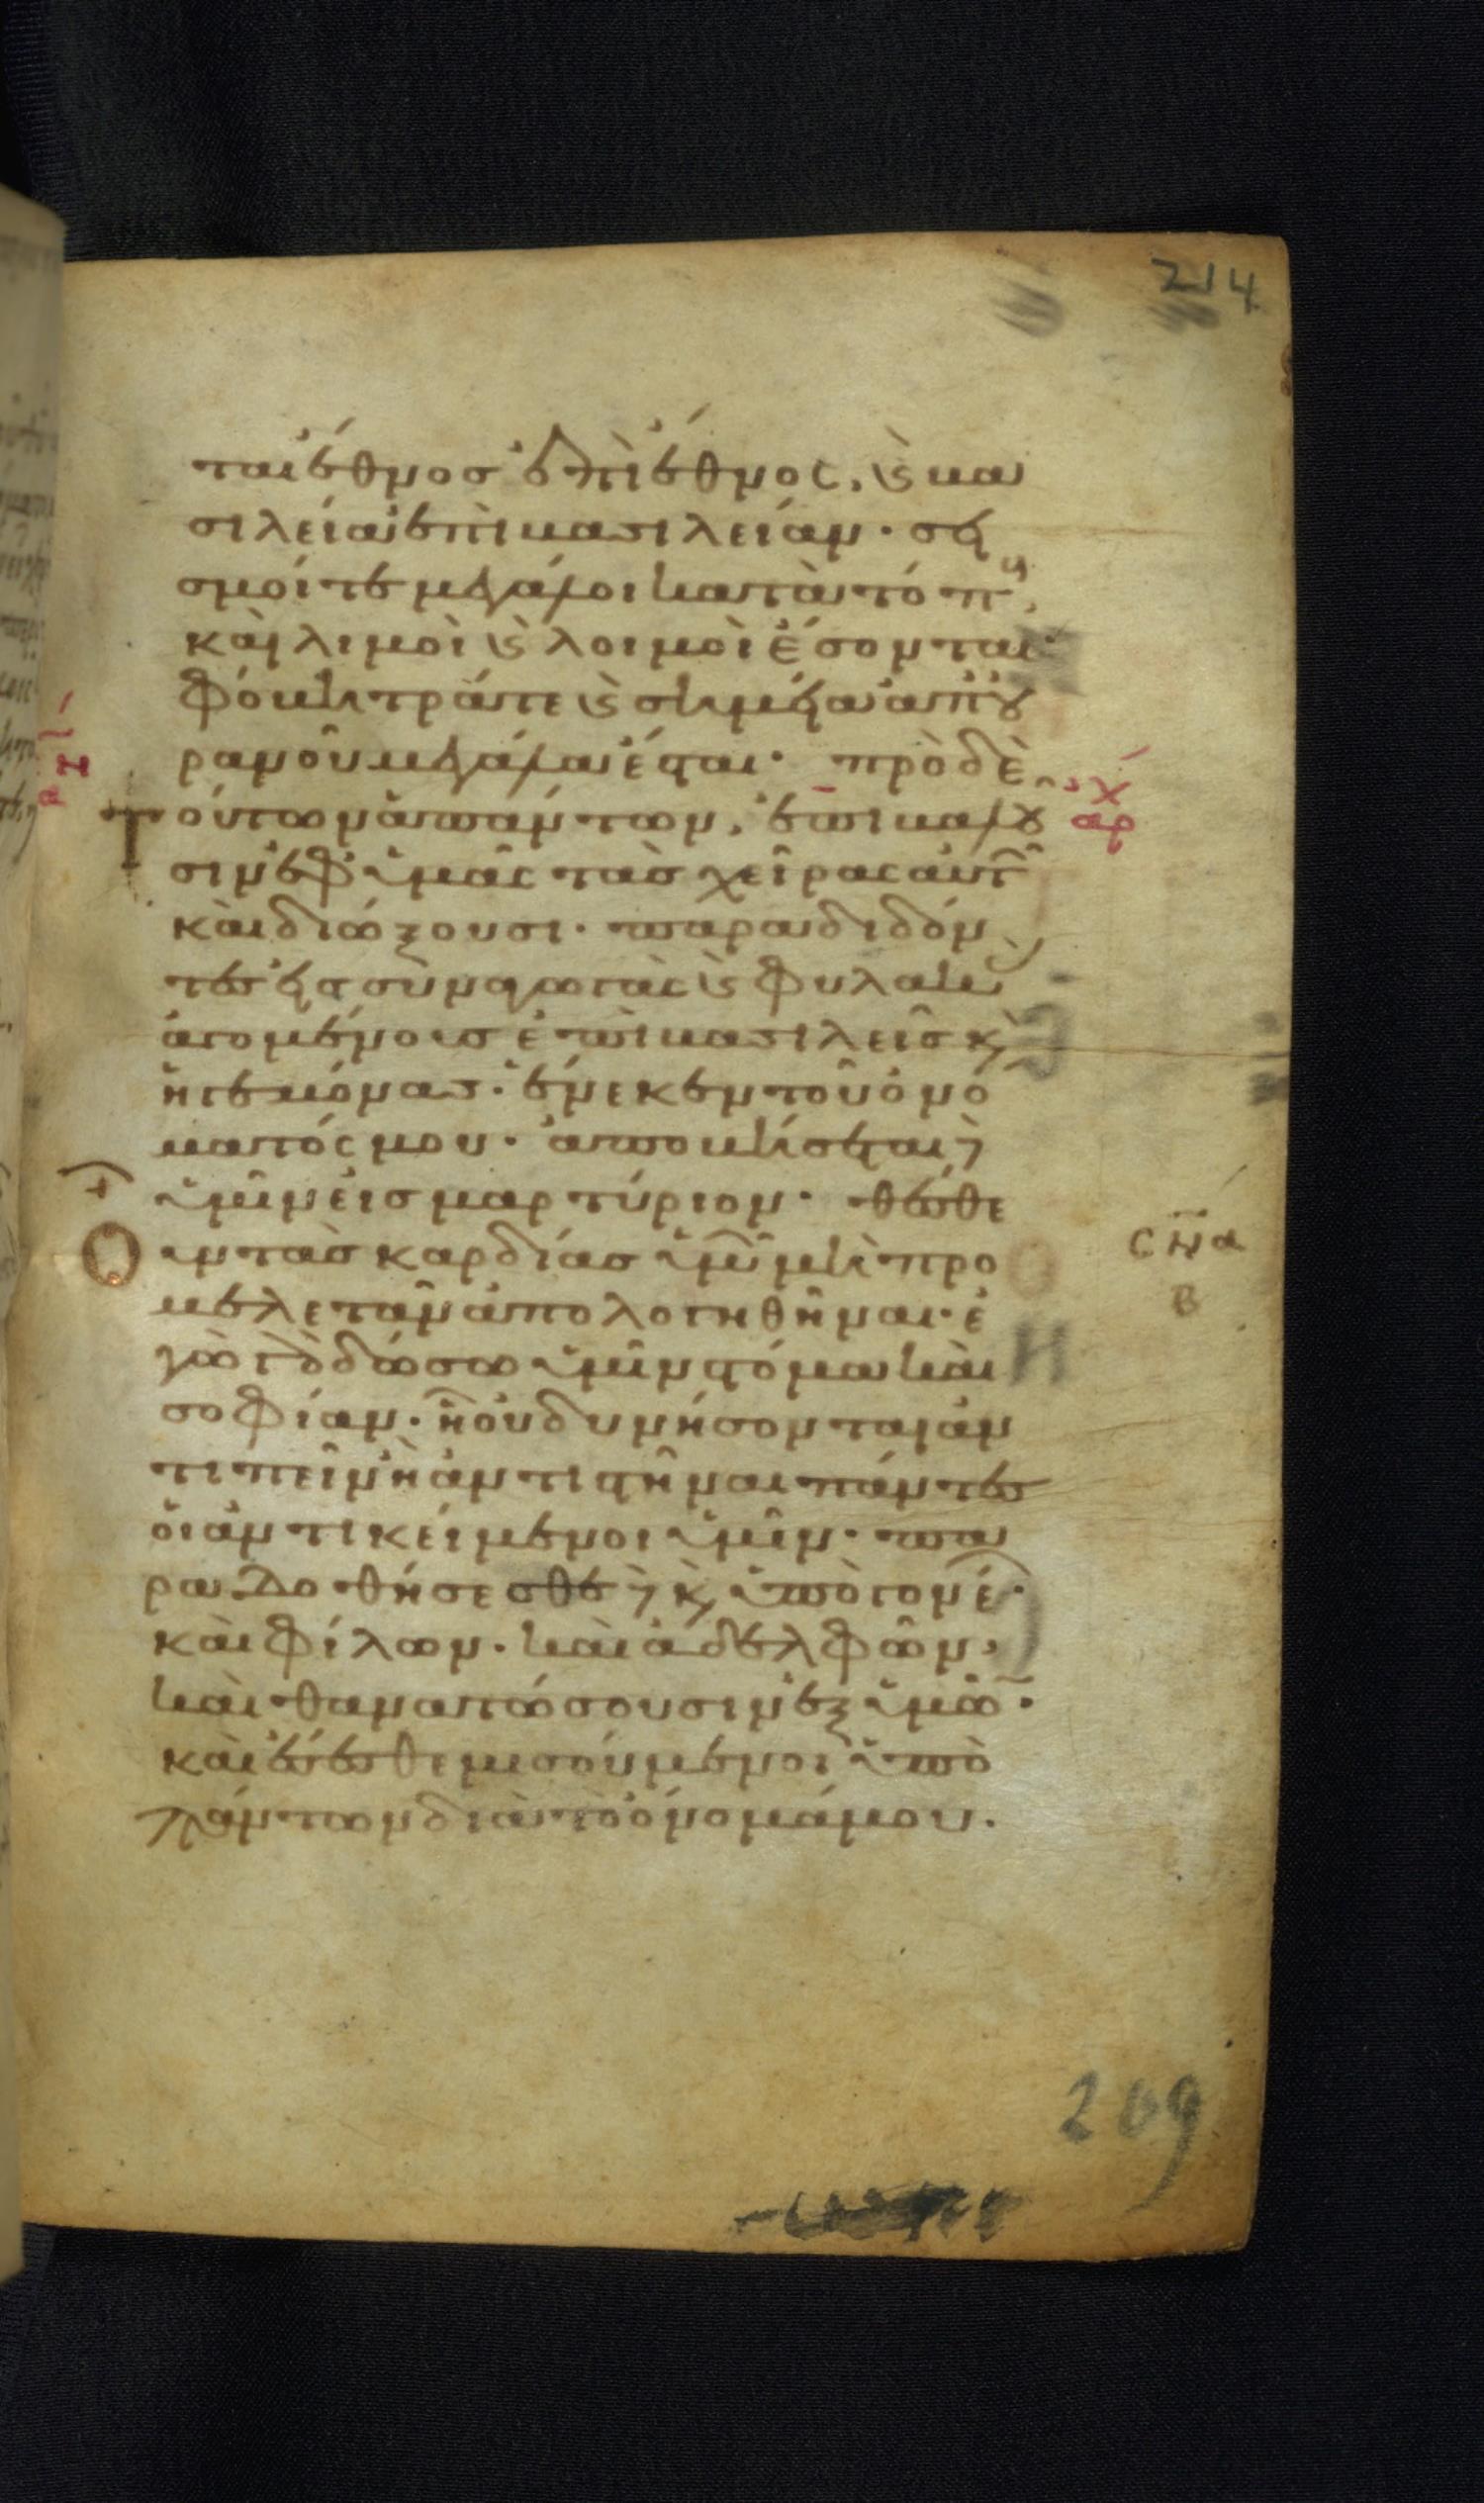 214
ται ἔθνος ἐπὶ ἔθνος, κ βα
σιλεία ἐπὶ βασιλείαν· σει
σμοί τε μεγάλοι κατὰ τόπ
καὶ λιμοὶ κ λοιμοὶ ἔσονται·
φόβητρά τε κ σημεῖα ἀπ οὐ
ρανοῦ μεγάλα ἔσται· πρὸ δὲ
τούτων ἁπάντων, ἐπιβαλοῦ
σιν ἐφ ὑμᾶς τὰς χεῖρας αὐτ
καὶ διώξουσι· παραδιδόν
τες εἰς συναγωγὰς κ φυλακὰ
ἀγομένους ἐπὶ βασιλεῖς κ
ἡγεμόνας· ἕνεκεν τοῦ ὀνό
ματός μου· ἀποβήσεται
ὑμῖν εἰς μαρτύριον· θέσθε
οὖν τὰς καρδίας ὑμῶν μὴ προ
μελετᾶν ἀπολογηθῆναι· ἐ
γὼ γὰρ δώσω ὑμῖν στόμα καὶ
σοφίαν· ἧ οὐ δυνήσονται ἀν
τιπεῖν ἢ ἀντιστῆναι πάντες
οἱ ἀντικείμενοι ὑμῖν· πα
ραδοθήσεσθε κ ὑπὸ γονέ·
καὶ φίλων· καὶ ἀδελφῶν·
καὶ θανατώσουσιν ἐξ ὑμῶ·
καὶ ἔσεσθε μισούμενοι ὑπὸ
πάντων διὰ τὸ ὄνομά μου.
209